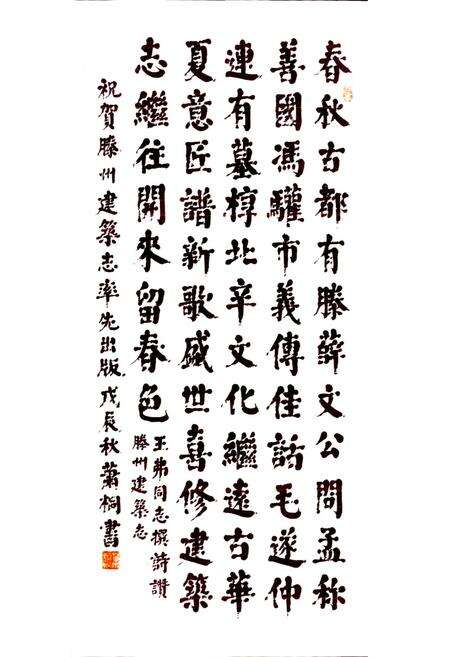 春秋古都有滕薛文公問孟称
善國馮驩市義傳佳話毛遂仲
連有墓椁北辛文化繼遠古華
夏意匠譜新歌盛世喜修建築
志繼往開來留春色
玉弟同志撰詩讚
滕州建築志
祝賀滕州建築志率先出版戊辰秋蕭桐書